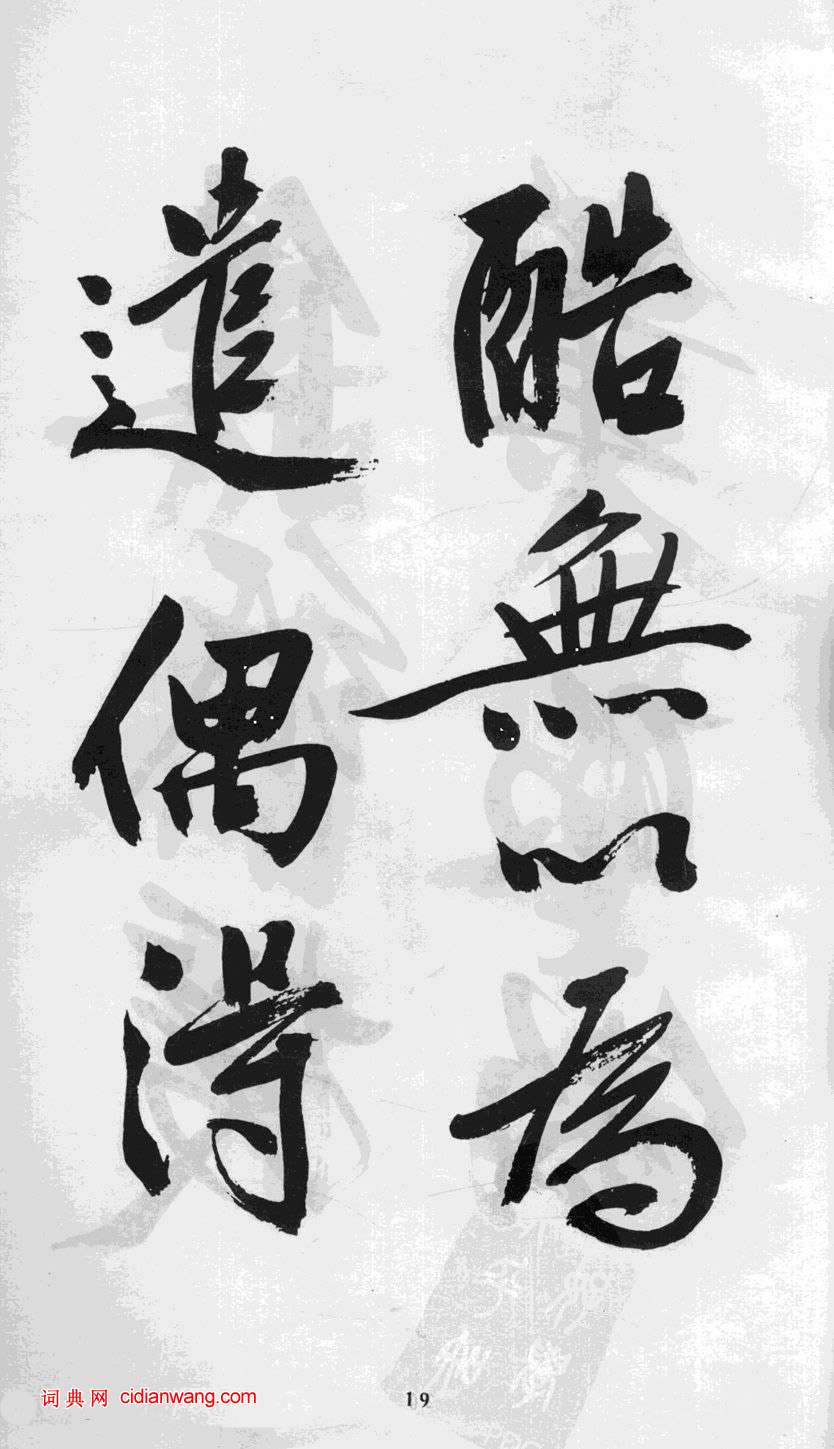 酷無以為
遣偶得
词典网 cidianwang.com
19